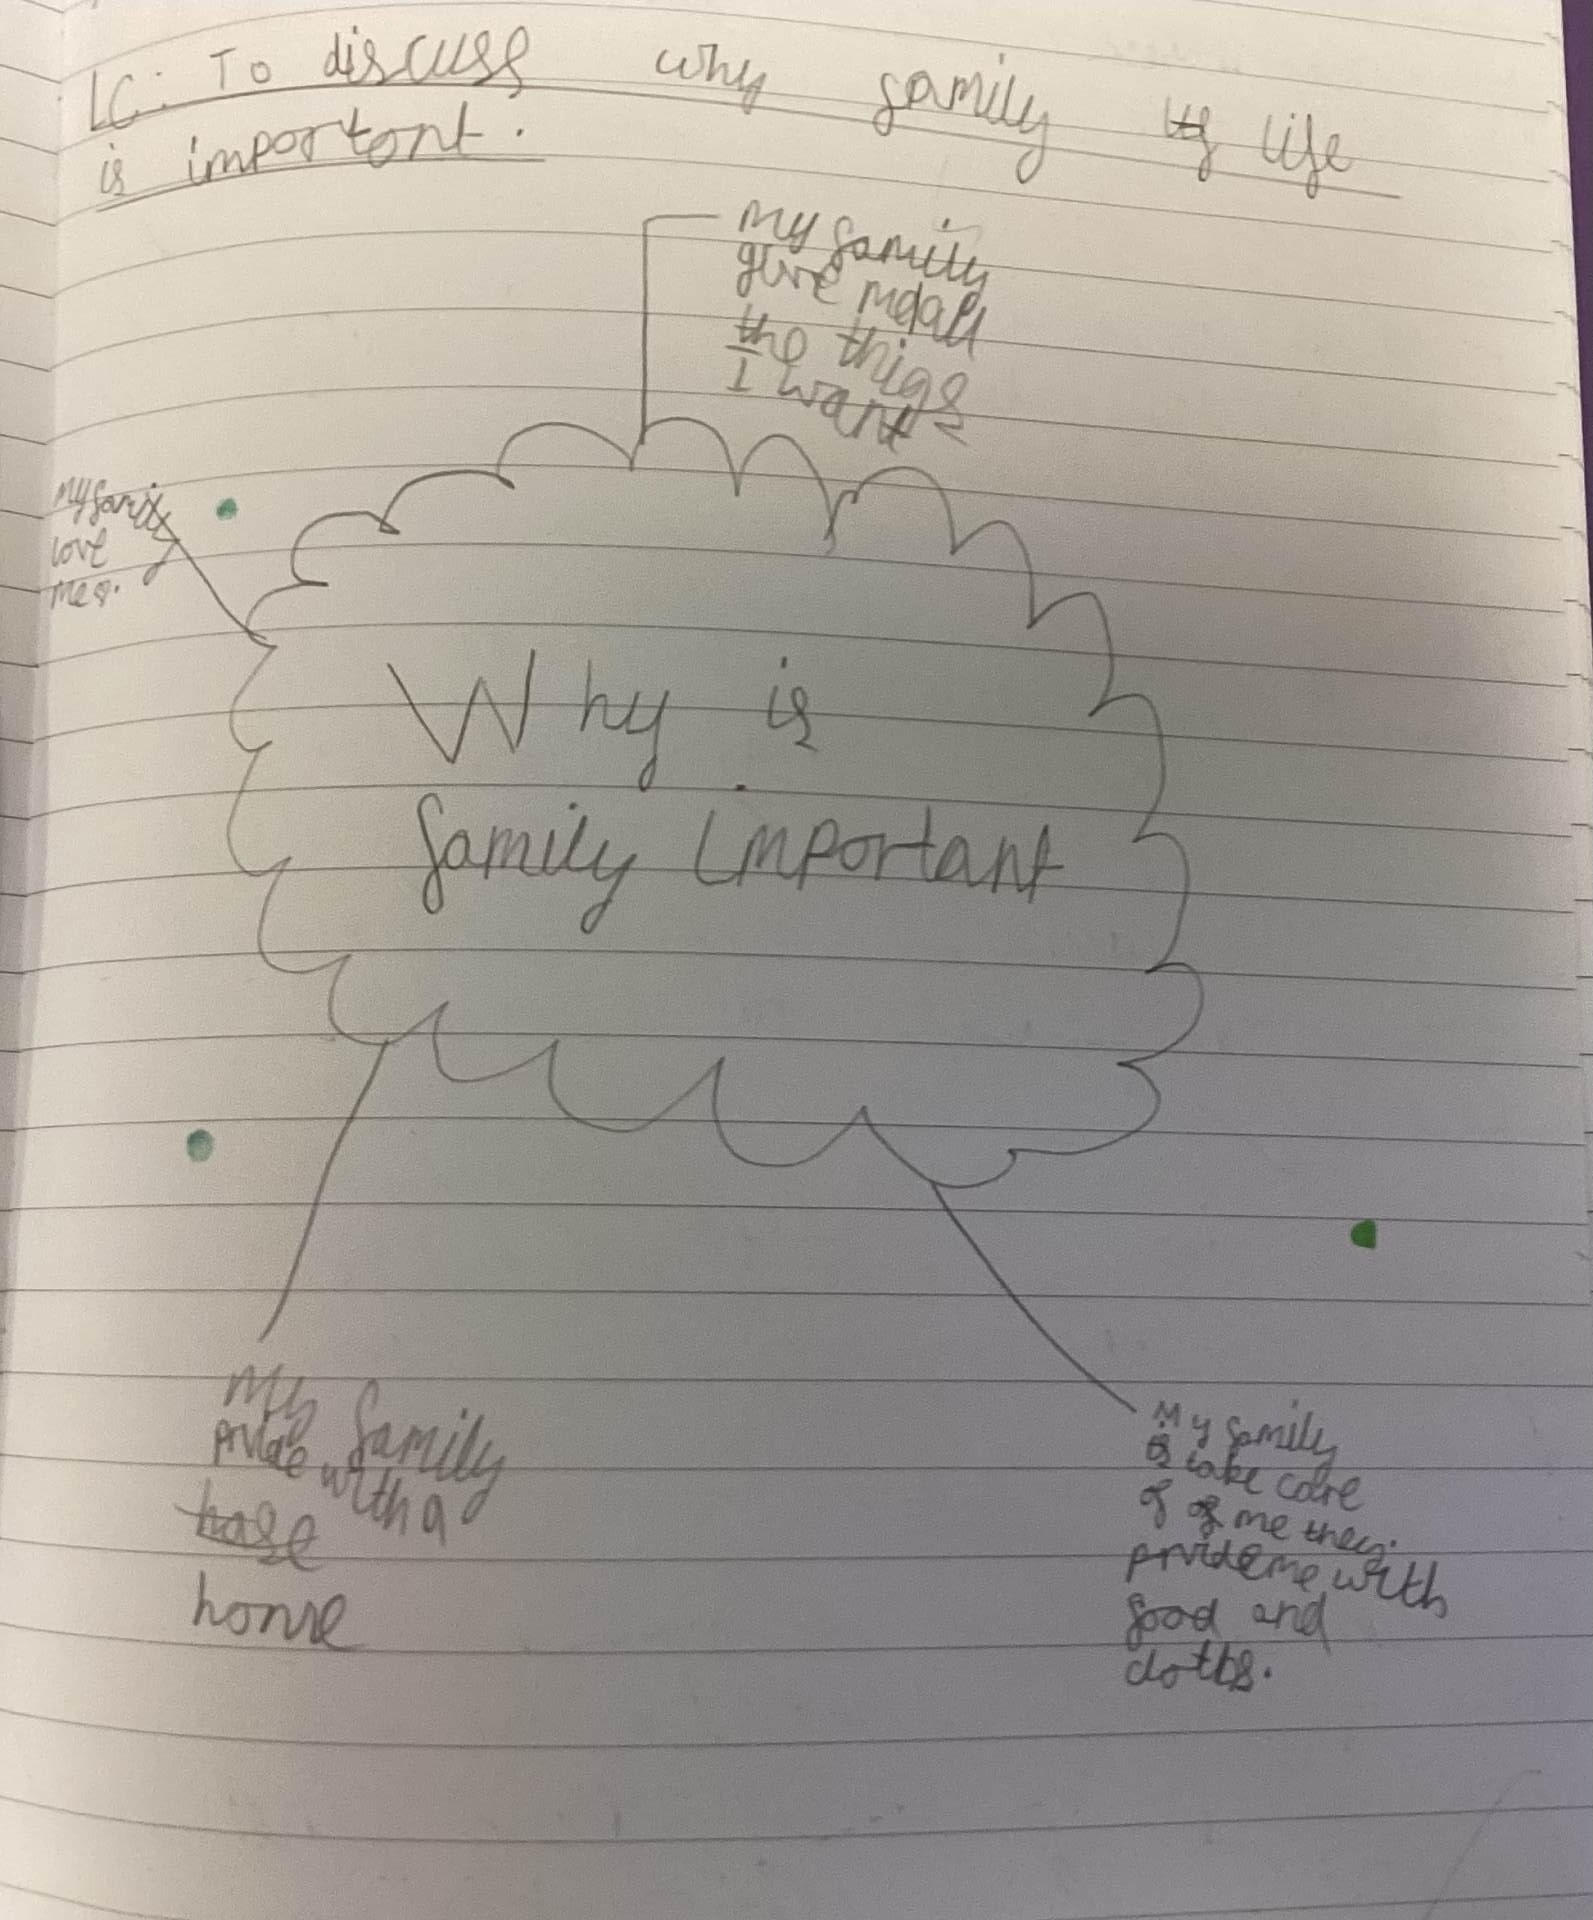 LC: To discuss why family life
is importont.
My family
give me all
the thigs
I want
My family
love
me.
Why is
family important
My family
pvide with a
hose
home
My family
take care
of me they
prvide me with
food and
cloths.